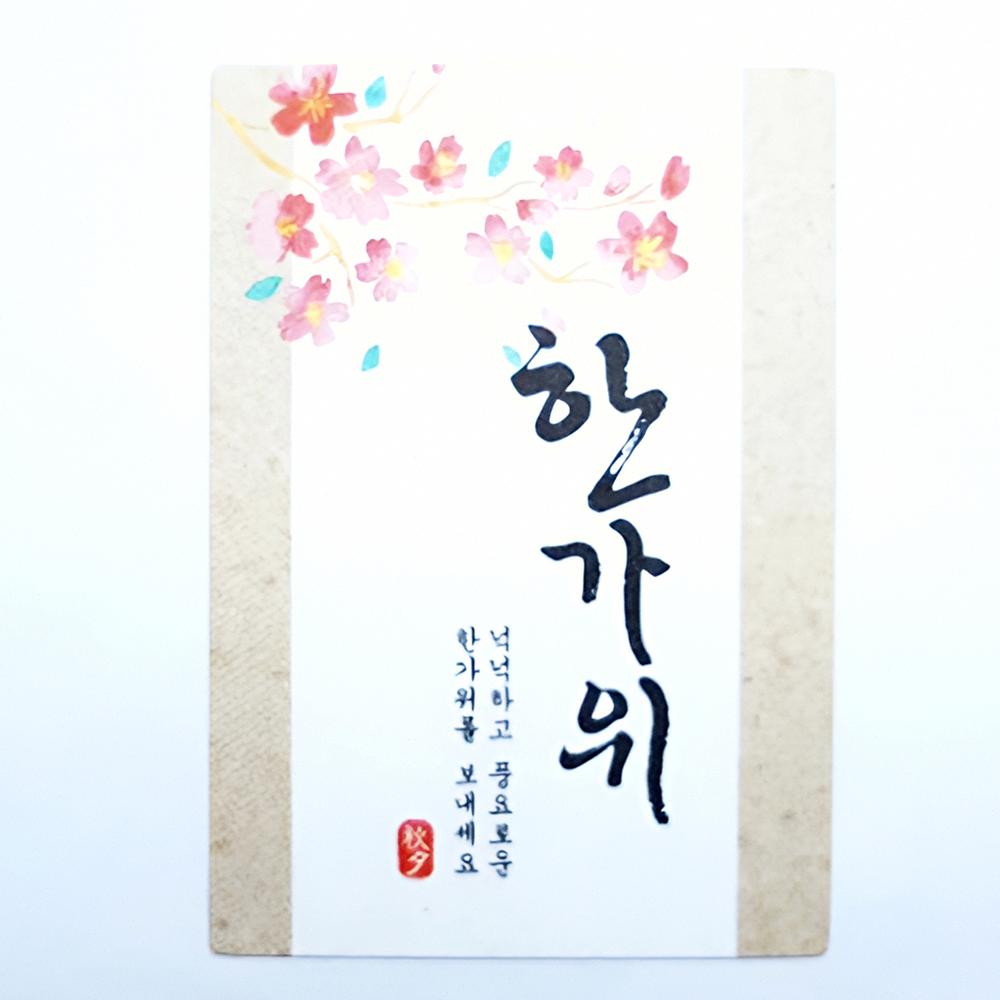 한가위
넉넉하고 풍요로운
한가위를 보내세요
秋夕